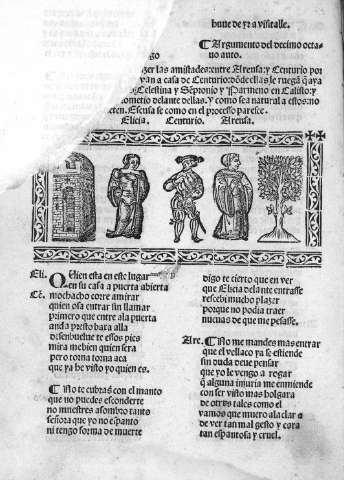 buue de yr a visitalle.
¶ Argumento del decimo octa-
go uo auto.
zer las amistades: entre Areusa: y Centurio por
van a casa de Centurio: dellas le ruegā q̄ aya
Celestina y Sēpronio y Parmeno en Calisto: y
rometio delante dellas. y como sea natural a estos: no
eten. Escusa se como en el processo paresce.
Elicia. Centurio. Areusa.
Eli. Quien esta en este lugar
en su casa a puerta abierta
Cē. mochacho corre a mirar
quien osa entrar sin llamar
primero que entre a la puerta
anda presto baxa alla
desenbuelue te essos pies
mira me bien quien sera
pero torna torna aca
que ya he visto yo quien es.
¶ No te cubras con el manto
que no puedes esconderte
no muestres assombro tanto
señora que yo no espanto
ni tengo forma de muerte
digo te cierto que en ver
que Elicia delante entrasse
rescebi mucho plazer
porque no podia traer
nueuas de que me pesasse.
Are. ¶ No me mandes mas entrar
que el vellaco ya se estiende
sin duda deue pensar
que yo le vengo a rogar
q̄ alguna injuria me enmiende
con ser visto mas holgara
de otros tales como el
vamos que muero a la clara
de ver tan mal gesto y cara
tan espantosa y cruel.